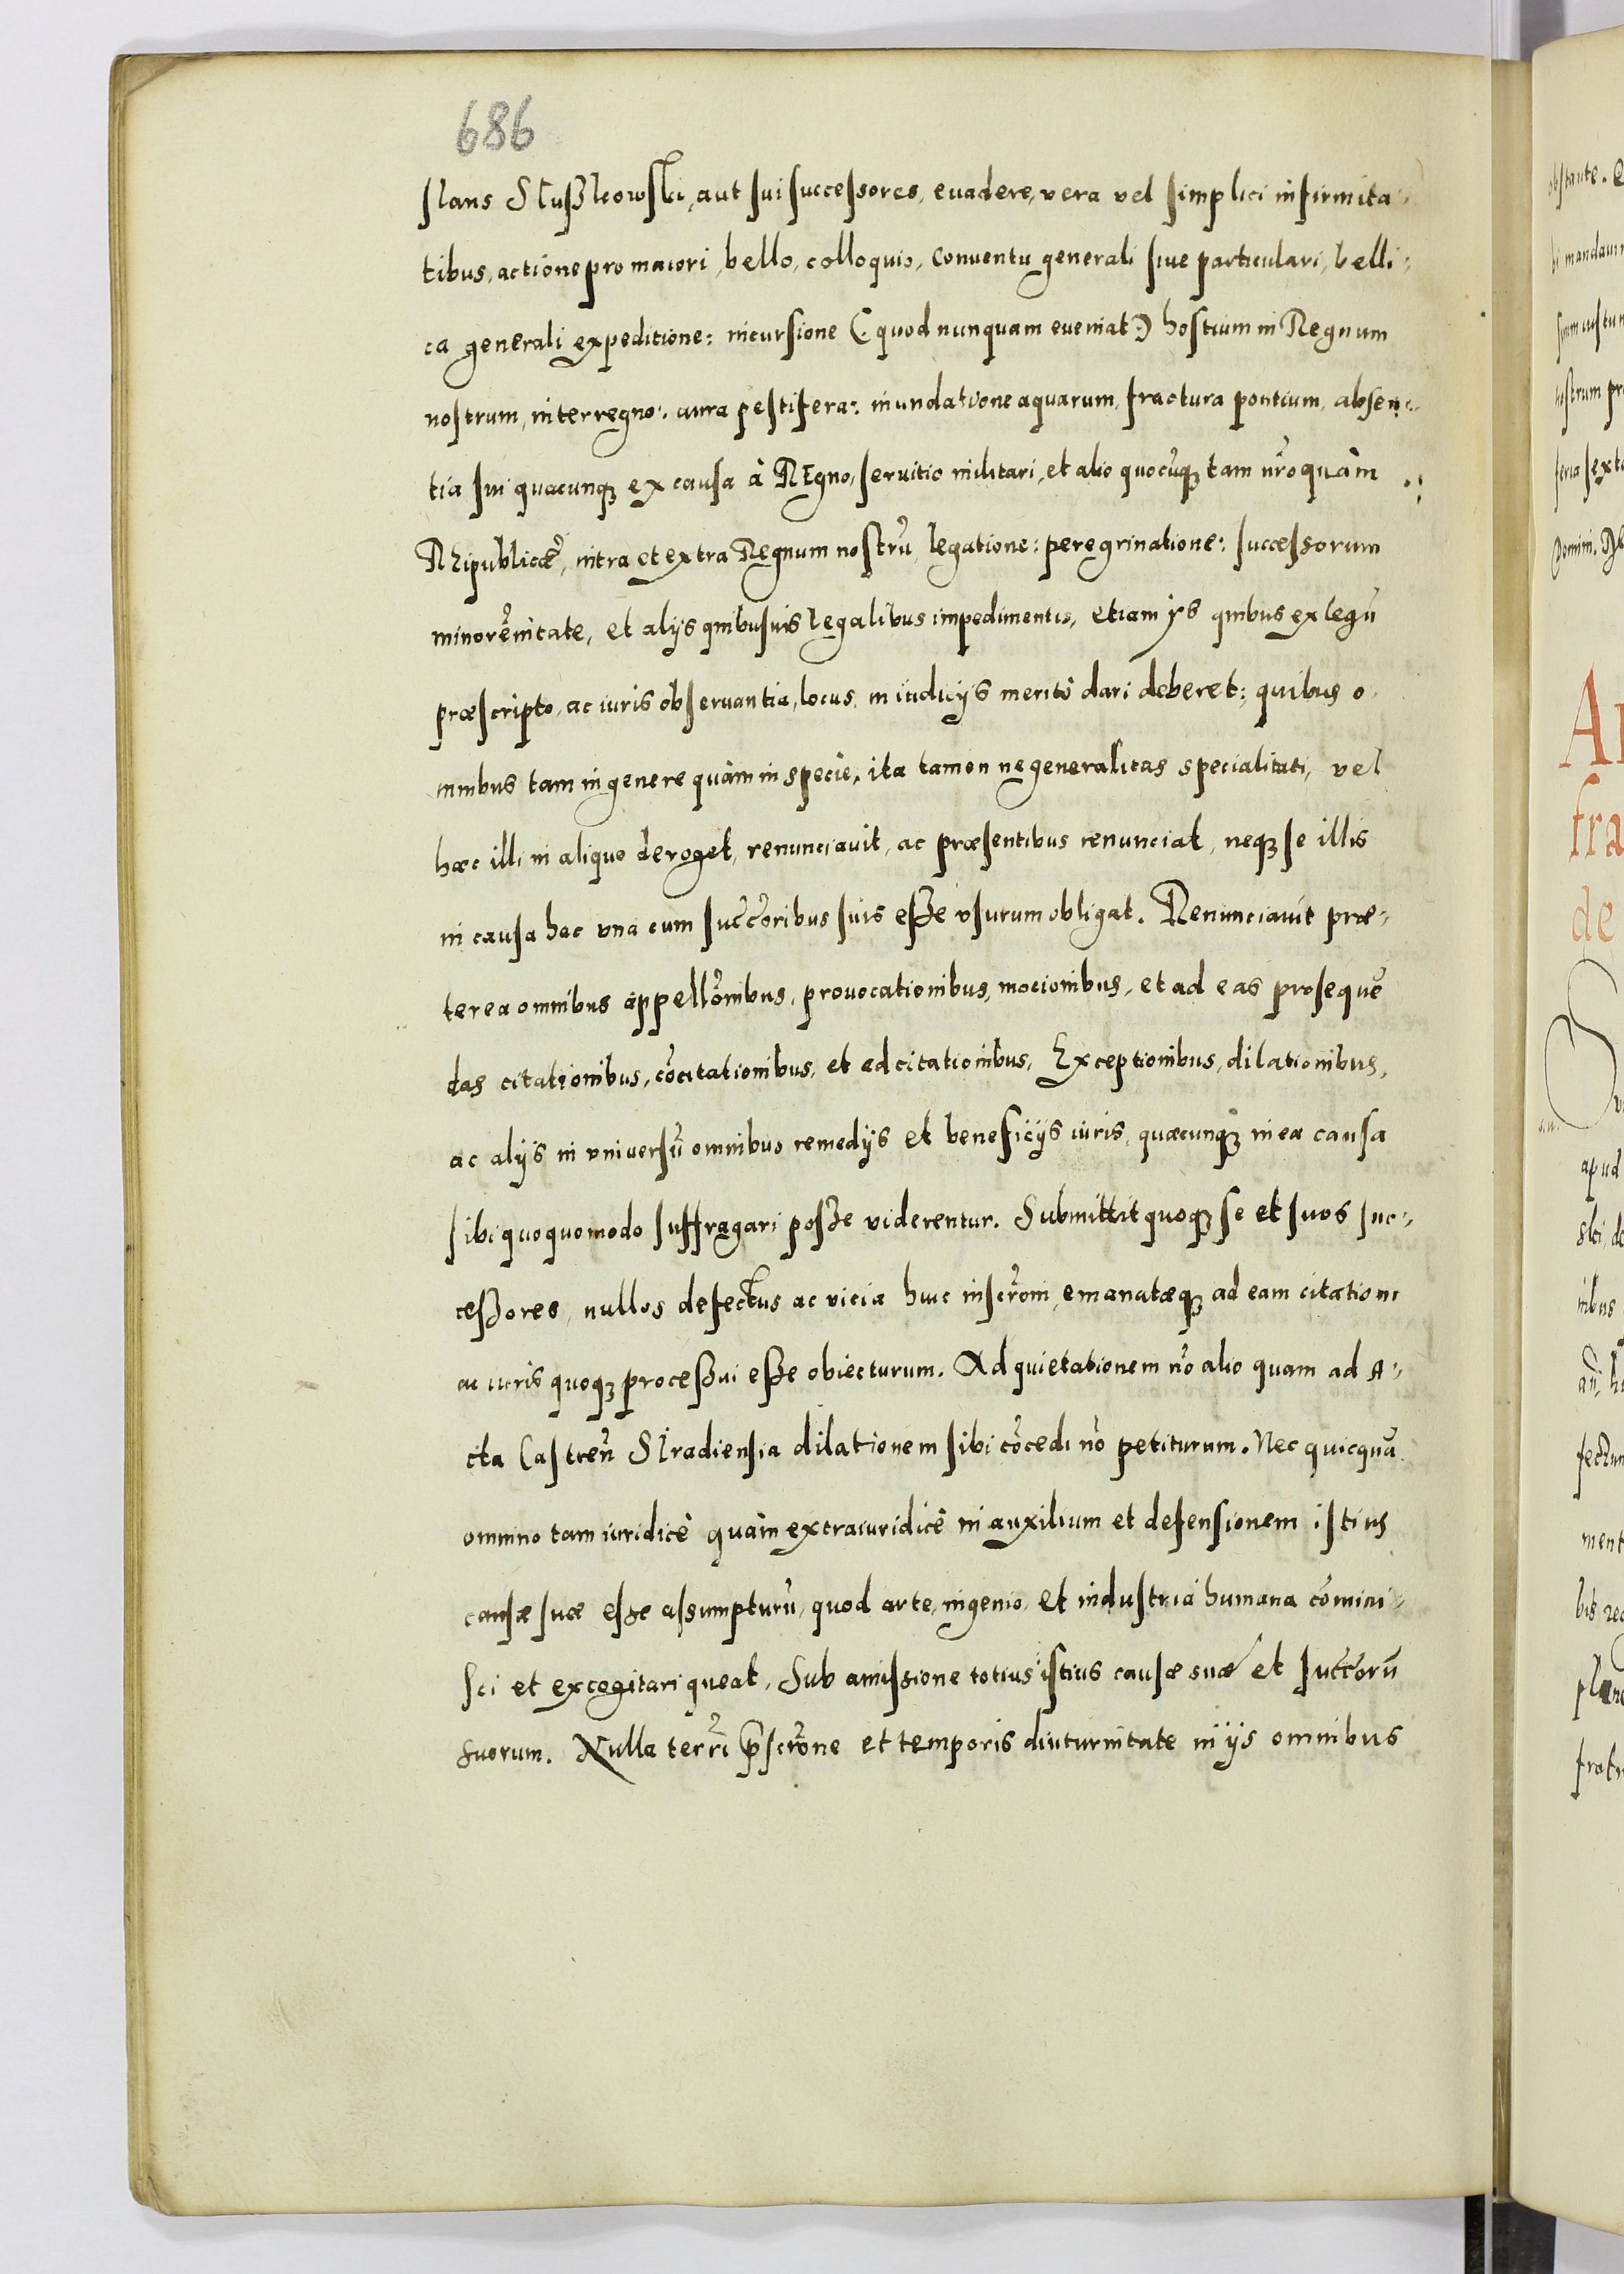 686
slaus Slußkowski, aut sui successores, euadere, vera vel simplici infirmita-
tibus, actione pro maiori, bello, colloquio, conuentu generali siue particulari, belli-
ca generali expeditione: incursione (: quod nunquam eueniat:) hostium in Regnum
nostrum, interregno: aura pestifera: inundatione aquarum, fractura pontium, absen-
tia sui quacunq; ex causa à REgno, seruitio militari, et alio quocũq; tam nr̃o quàm
Rẽipublicæ, intra et extra Regnum nostrũ, legatione: peregrinatione: successorum
minorẽnitate, et alijs quibusuis legalibus impedimentis, etiam ijs quibus ex legũ
præscripto, ac iuris obseruantia, locus in iudicijs meritò dari deberet: quibus o-
mnibus tam in genere quàm in specie, ita tamen ne generalitas specialitati, vel
hæc illi in aliquo deroget, renunciauit, ac præsentibus renunciat, neq; se illis
in causa hac vna cum succ̃oribus suis eße vsurum obligat. Renunciauit præ-
terea omnibus appellõnibus, prouocationibus, mocionibus, et ad eas prosequẽ
das citationibus, cõcitationibus, et adcitationibus, Exceptionibus, dilationibus,
ac alijs in vniuersũ omnibus remedijs et beneficijs iuris, quæcunq; in ea causa
sibi quoquomodo suffragari poße viderentur. Submittit quoq; se et suos suc-
ceßores, nullos defectus ac vicia huic inscr̃oni, emanatæq; ad eam citationi
ac iuris quoq; proceßui eße obiecturum. Ad quietationem nõ alio quam ad A-
cta Castreñ Siradiensia dilationem sibi cõcedi nõ petiturum. Nec quicquã
omnino tam iuridicè quàm extraiuridicè in auxilium et defensionem istius
causæ suæ eße assumpturũ, quod arte, ingenio, et industria humana cõmini-
sci et excogitari queat, Sub amissione totius istius causæ suæ et succ̃orũ
suorum. Nulla terr̃i p̃scr̃one et temporis diuturnitate in ijs omnibus